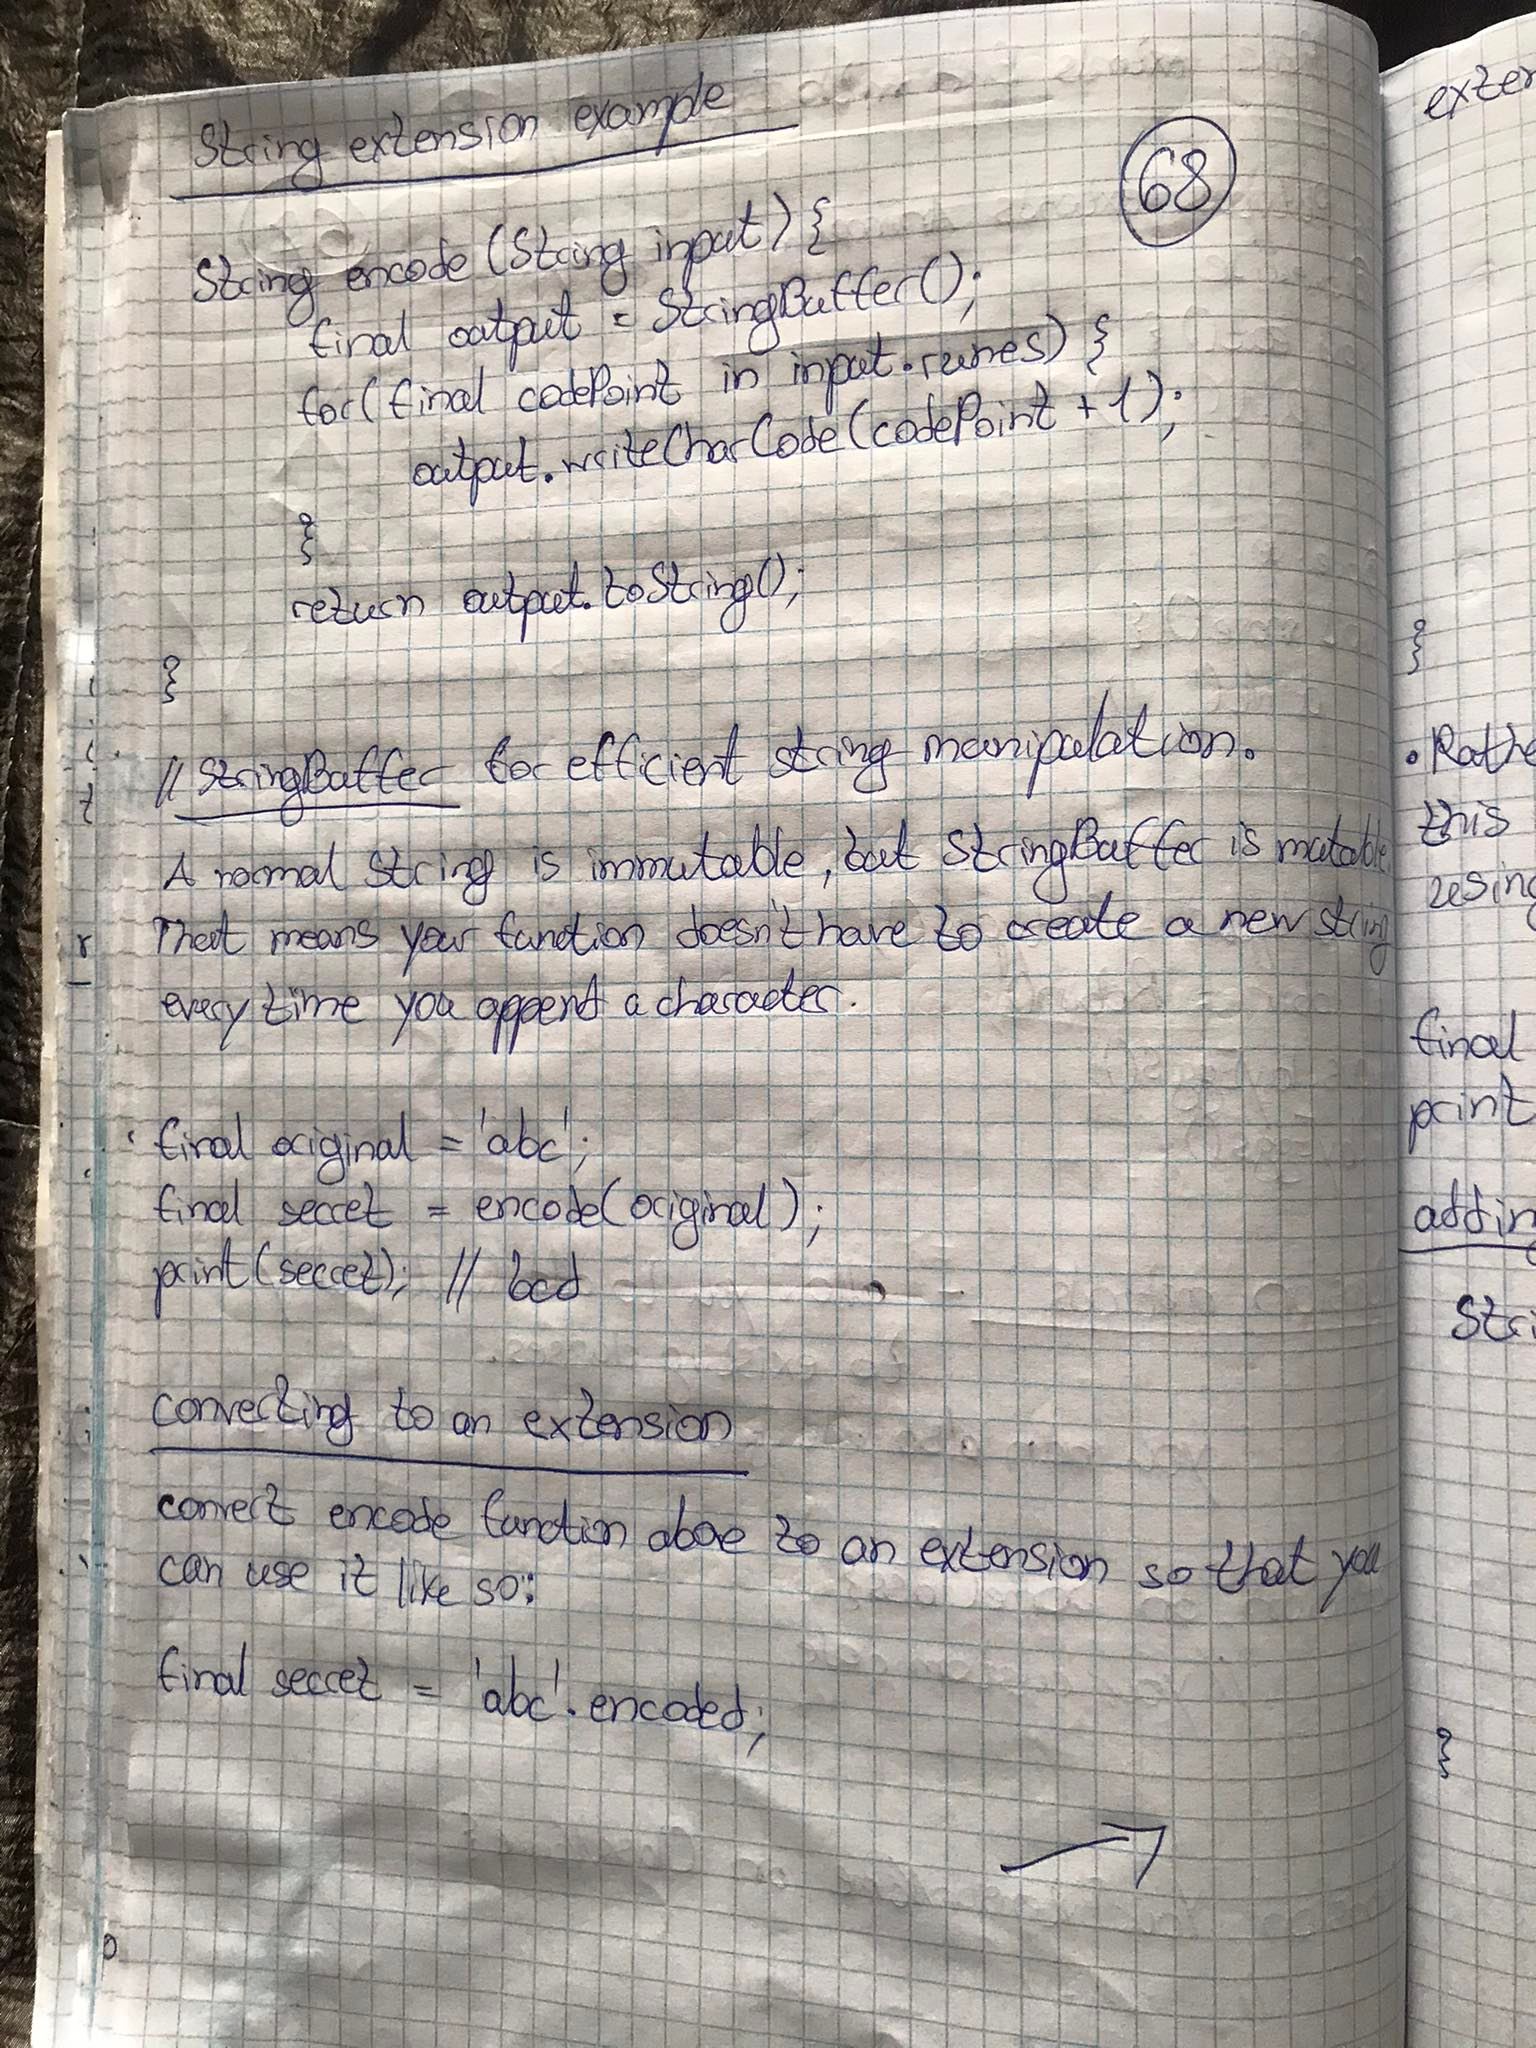 String extension example
68
String encode (String input) {
final output = StringBuffer();
for(final codePoint in input.runes) {
output.writeCharCode(codePoint + 1);
}
return output.toString();
}
// StringBuffer for efficient string manipulation.
A normal String is immutable, but StringBuffer is mutable.
That means your function doesn't have to create a new string
every time you append a character.
final original = 'abc';
final secret = encode(original);
print(secret); // bcd
converting to an extension
convert encode function above to an extension so that you
can use it like so:
final secret = 'abc'.encoded;
}
• Rathe
this
using
final
print
Stri
}